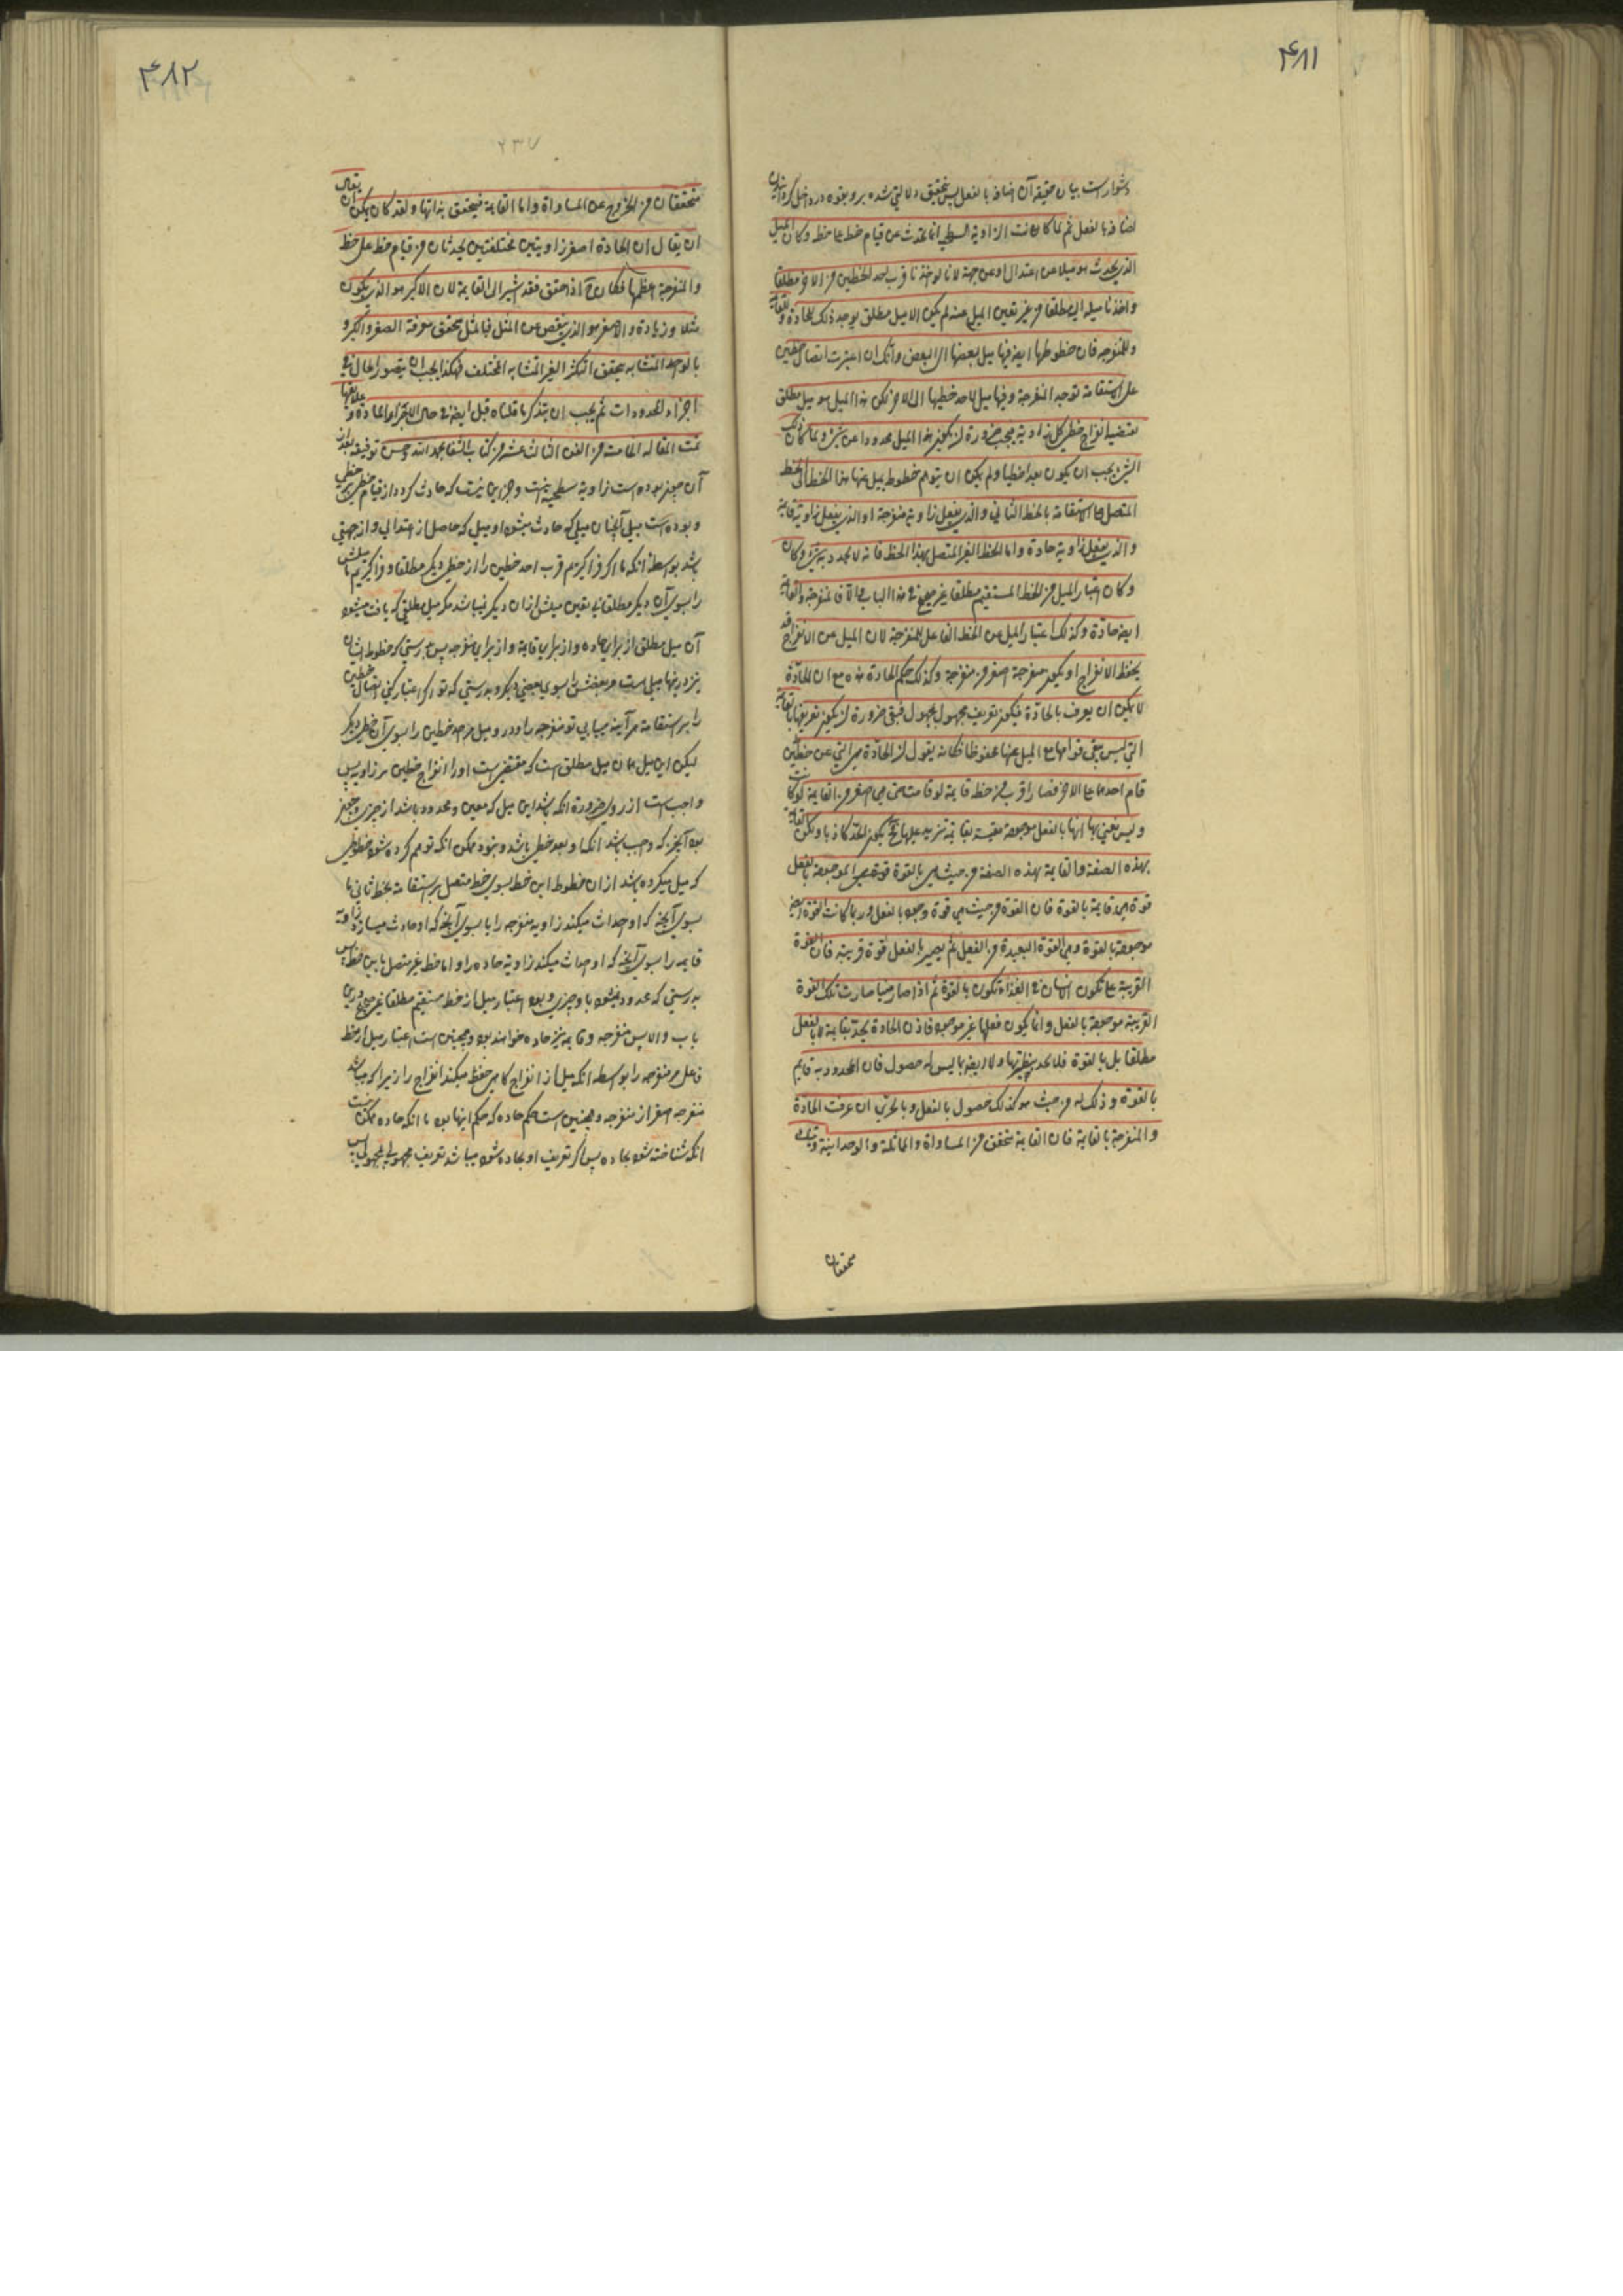 ۴۸۱
دشوار است بیان حقیقه آن اضافه بالفعل پس تحقیق دلالتی شده برو بقوه در داخل کردانیدن
اضافه بالفعل ثم لما کانت الزاویة السطحیة انما تحدث عن قیام خط علی خط وکان المیل
الذی یحدث هو میلا عن اعتدال وعن جهة لانا لو اخذنا قرب احد الخطین من الاخر مطلقا
واخذنا میله الیه مطلقا من غیر تعیین المیل عنه لم یکن الا میل مطلق یوجد ذلک للحادة وللقایمة
وللمنفرجة فان خطوطها ایضا فیها میل بعضها الی البعض وانک ان اعتبرت اتصال خطین
علی استقامة توجد المنفرجة وفیها میل لاحد خطیها الی الاخر لکن هذا المیل هو میل مطلق
یقتضیه انفراج خطی کل زاویة فیجب ضرورة ان یکون هذا المیل محدودا عن شیء ولما کان ذلک
الشیء یجب ان یکون بعدا خطیا ولم یکن ان یتوهم خطوط یمیل عنها هذا الخط الی الخط
المتصل علی الاستقامة بالخط الثانی والذی یفعل زاویة منفرجة او الذی یفعل زاویة قایمة
والذی یفعل زاویة حادة واما الخط الغیر المتصل بهذا الخط فانه لا یحدد به شیء وکان
وکان اعتبار المیل من الخط المستقیم مطلقا غیر صحیح فی هذا الباب والا فالمنفرجة والقایمة
ایضا حادة وکذلک اعتبار المیل عن الخط الفاعل للمنفرجة لان المیل عن الانفراج قد
یحفظ الانفراج او یکون منفرجة اصغر من منفرجة وکذلک حکم الحادة هذه مع ان الحادة
لا یمکن ان یعرف بالحادة فیکون تعریف مجهول بمجهول فبقی ضرورة ان یکون تعریفها بالقایمة
التی لیس یبقی قوامها مع المیل عنها محفوظا فکانه یقول ان الحادة هی التی عن خطین
قام احدهما علی الاخر فصار اقرب من خط قایمة لو قامت حتی هی اصغر من القایمة لو کانت
ولیس نعنی بها انها بالفعل موجودة مقیسة بقایمة تزید علیها ح یکون الحد کاذبا ولکن القایمة
بهذه الصفة والقایمة بهذه الصفة من حیث هی بالقوة قوة هی الموجودة بالفعل
قوة هی قایمة بالقوة فان القوة من حیث هی قوة وجود بالفعل وربما کانت القوة ایضا
موجودة بالقوة وهی القوة البعیدة من الفعل ثم یصیر بالفعل قوة قریبة فان القوة
القریبة علی تکون الانسان فی الغذاء تکون بالقوة ثم اذا صار منیا صارت تلک القوة
القریبة موجودة بالفعل وانما یکون فعلها غیر موجود فاذن الحادة یحد بقایمة لا بالفعل
مطلقا بل بالقوة فلا یحد بنظیرتها ولا ایضا بما لیس له حصول فان المحدود به قایم
بالقوة وذلک له من حیث هو کذلک حصول بالفعل وبالحری ان عرفت الحادة
والمنفرجة بالقایمة فان القایمة یتحقق من المساواة والمماثلة والوحدانیة وتلک
متحققان
۴۸۲
۲۳۷
متحققان من الخروج عن المساواة واما القایمة فیتحقق بذاتها ولقد کان یمکن ان یقال
ان یقال ان الحادة اصغر زاویتین مختلفتین یحدثان من قیام خط علی خط
والمنفرجة اعظمها فکان ح اذا حقق فقد اشیر الی القایمة لان الاکبر هو الذی یکون
مثلا وزیادة والاصغر هو الذی ینقص عن المثل فبالمثل یتحقق معرفة الصغر والکبر و
بالواحد المتشابه یتحقق التکثر الغیر المتشابه المختلف فهکذا یجب ان یتصور الحال فی
اجزاء المحدودات ثم یجب ان یتذکر ما قلناه قبل ایضا فی حال
تمت المقالة الخامسة من الفن الثالث عشر من کتاب الشفا بحمد الله وحسن توفیقه بعد از
آن چون بوده است زاویه سطحیه جز این نیست که حادث کردد از قیام خطی بر خطی
و بوده است میل آنچنان میلی که حادث میشود او میلی که حاصل از اعتدالی و از جهتی
باشد بواسطه انکه ما اکر فرا کیریم قرب احد خطین را از خطی دیکر مطلقا و فرا کیریم میلش
را بسوی آن دیکر مطلقا بی تعیین میلش ازان دیکر نمیباشد مکر میل مطلقی که یافت میشود
آن میل مطلق از برای حاده و از برای قایمه و از برای منفرجه پس بدرستی که خطوط ایشان
نیز در اینها میلی است مر بعضش را بسوی بعضی دیکر و بدرستی که تو اکر اعتبار کنی اتصال خطین
را بر استقامت هر آینه میابی تو منفرجه را و در و میل مر احد خطین را بسوی آن خطی دیکر
لیکن این میل همان میل مطلق است که مقتضی است او را انفراج خطین هر زاویه پس
واجبست از روی ضرورة انکه باشد این میل که معین و محدود باشد از چیزی و چون
بود آنچیز که واجب باشد انکه او بعد خطی باشد و نبود ممکن انکه توهم کرده شود خطوطی
که میل میکرده باشد ازان خطوط این خط بسوی خط متصل بر استقامت بخط ثانی یا
بسوی آنخط که او احداث میکند زاویه منفرجه را یا بسوی آنخط که او حادث میسازد زاویه
قایمه را بسوی آنخط که او احداث میکند زاویه حاده را و اما خط غیر متصل باین خط پس
بدرستی که محدود نمیشود باو چیزی و بود اعتبار میل از خط مستقیم مطلقا غیر صحیح درین
باب والا پس منفرجه و قایمه نیز حاده خواهند بود و همچنین است اعتبار میل از خط
فاعل مر منفرجه را بواسطه انکه میل از انفراج کاهی حفظ میکند انفراج را زیرا که میباشد
منفرجه اصغر از منفرجه و همچنین است حکم حاده که حکم اینها بود با انکه حاده ممکن نیست
انکه شناخته شود بحاده پس اکر تعریف او بحاده شود میباشد تعریف مجهولی بمجهولی پس